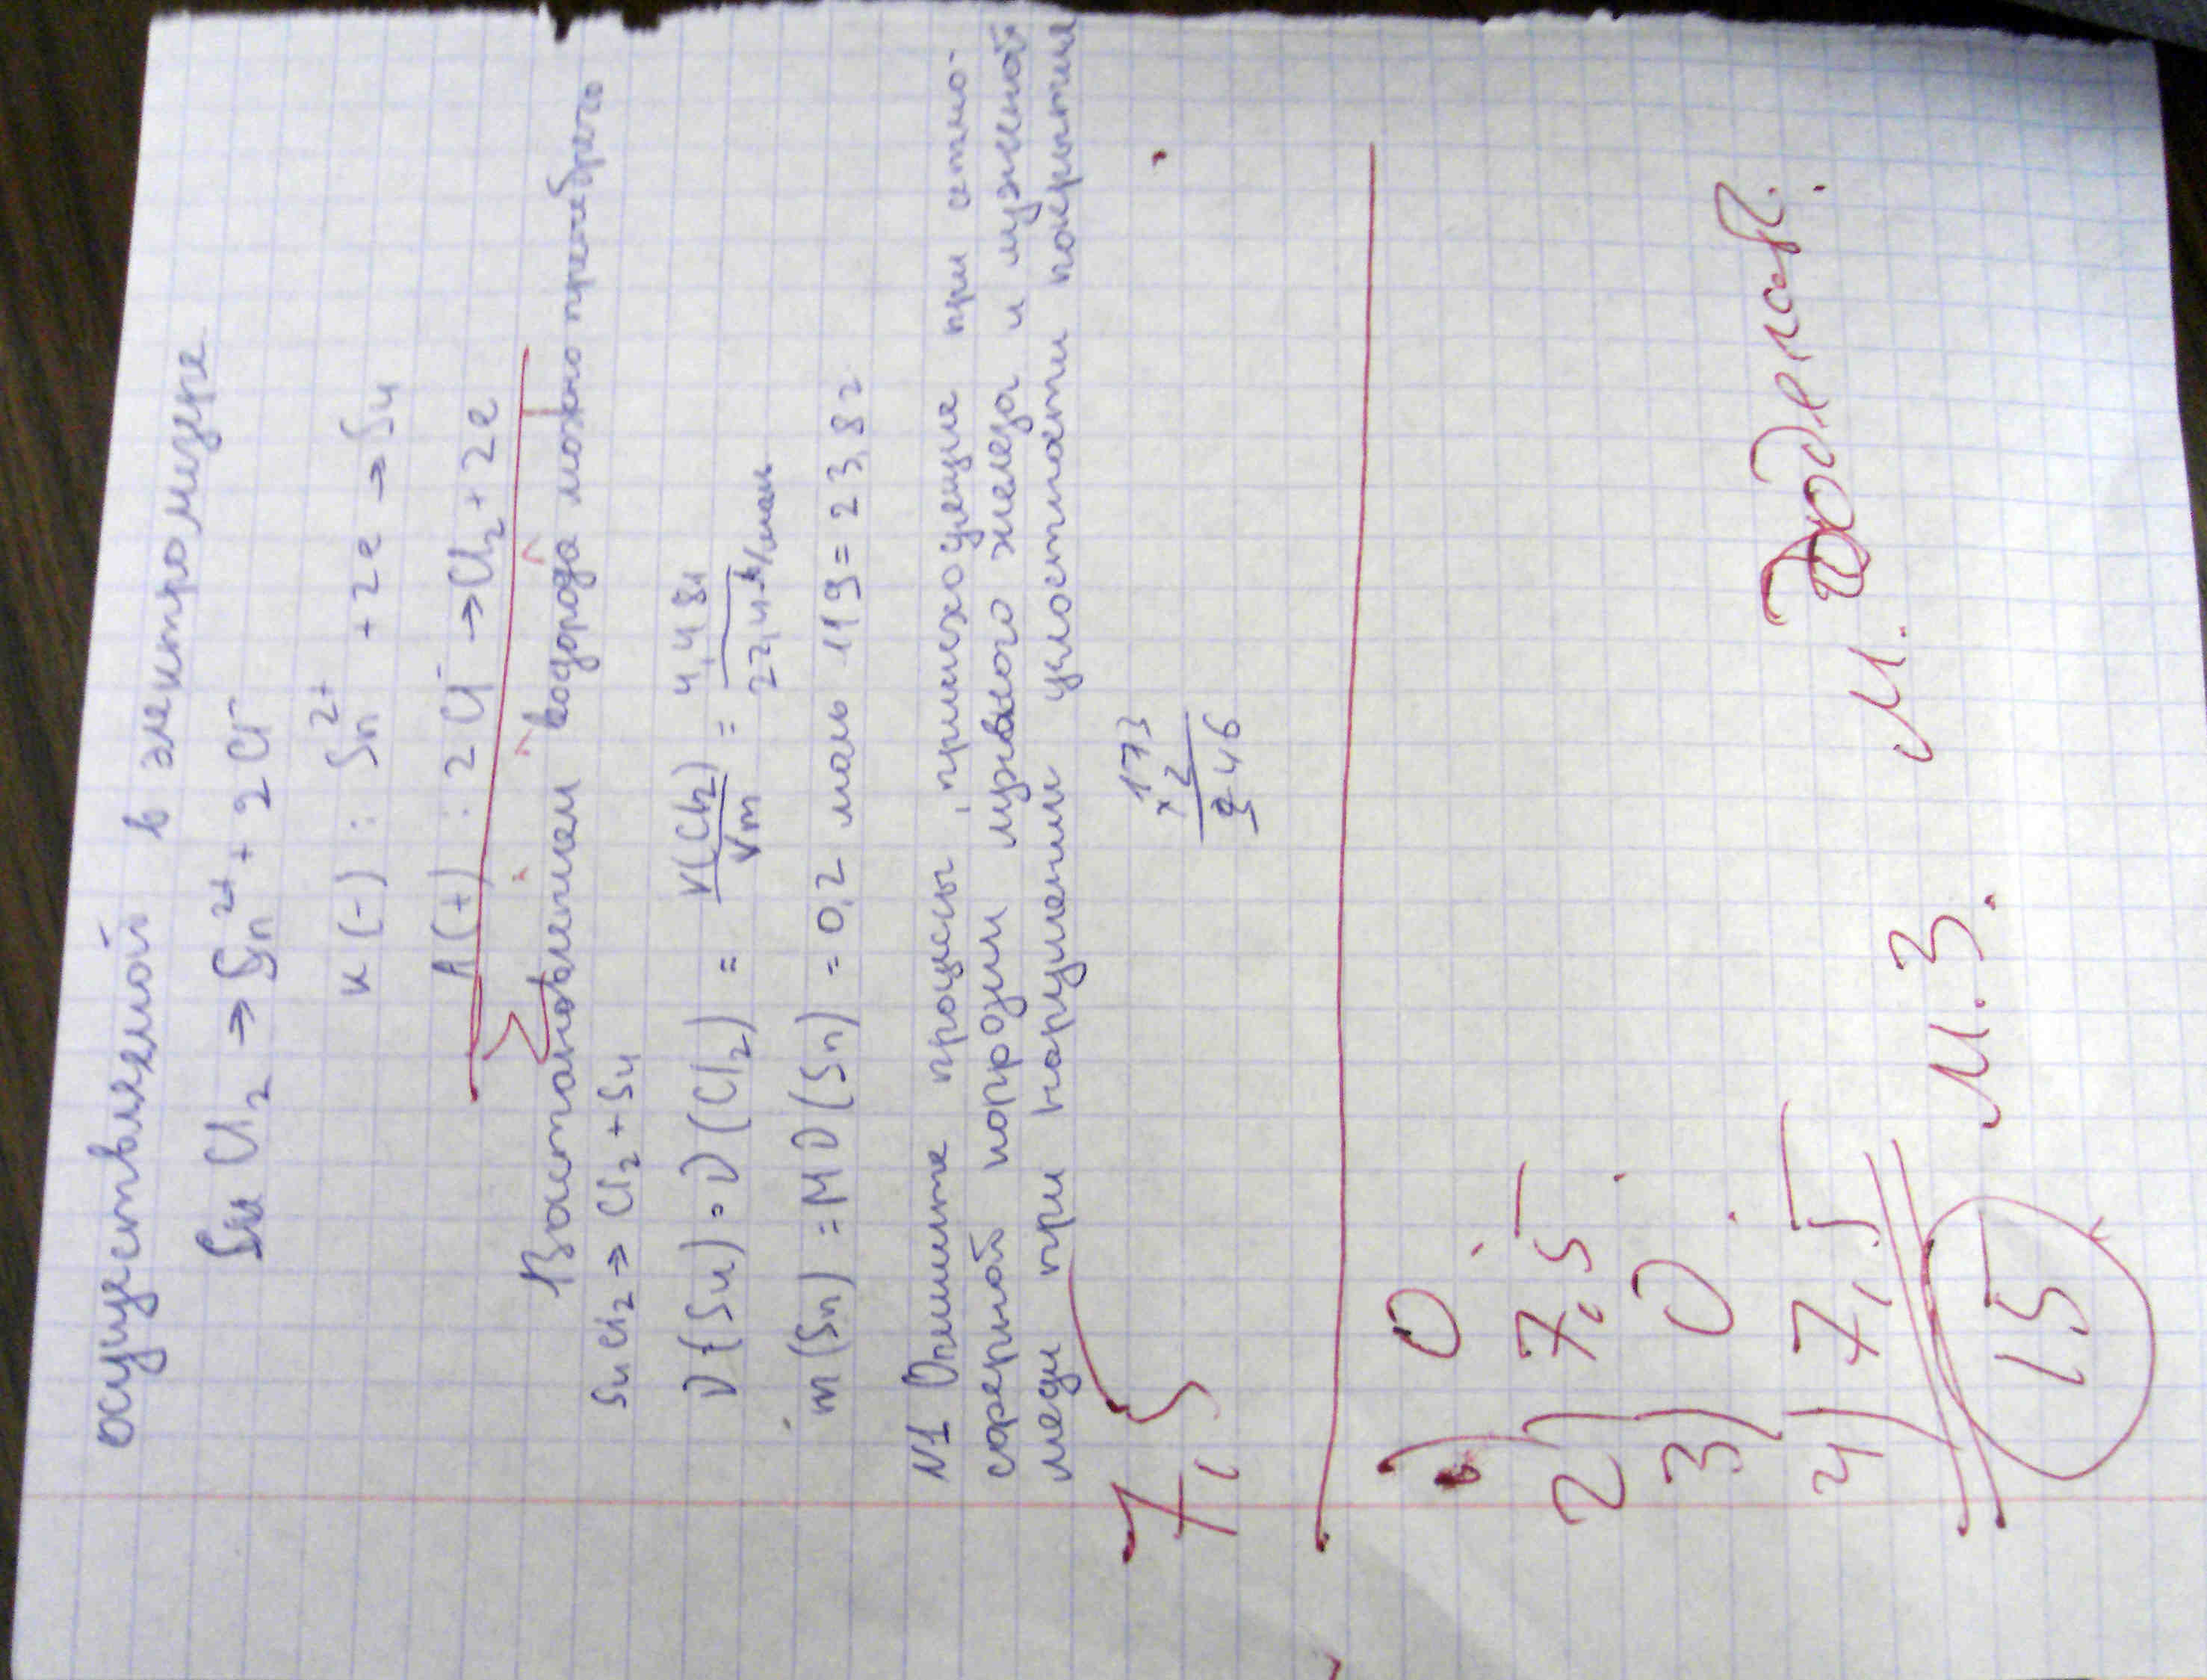 осуществляемой в электролизере
SnCl₂ → Sn²⁺ + 2Cl⁻
К(-): Sn²⁺ + 2e → Sn
А(+): 2Cl⁻ → Cl₂ + 2e
водорода можно пренебречь
SnCl₂ → Cl₂ + Sn
ν(Sn) = ν(Cl₂) = V(Cl₂)/Vm = 4,48л/22,4л/моль
m(Sn) = Mν(Sn) = 0,2 моль 119 = 23,8г
N1 Опишите процессы, происходящие при атмо-
сферной коррозии луженого железа и луженой
меди при нарушении целостности покрытия
173
×2
346
7,5
0
2) 7,5
3) 0
4) 7,5
15 М.З.